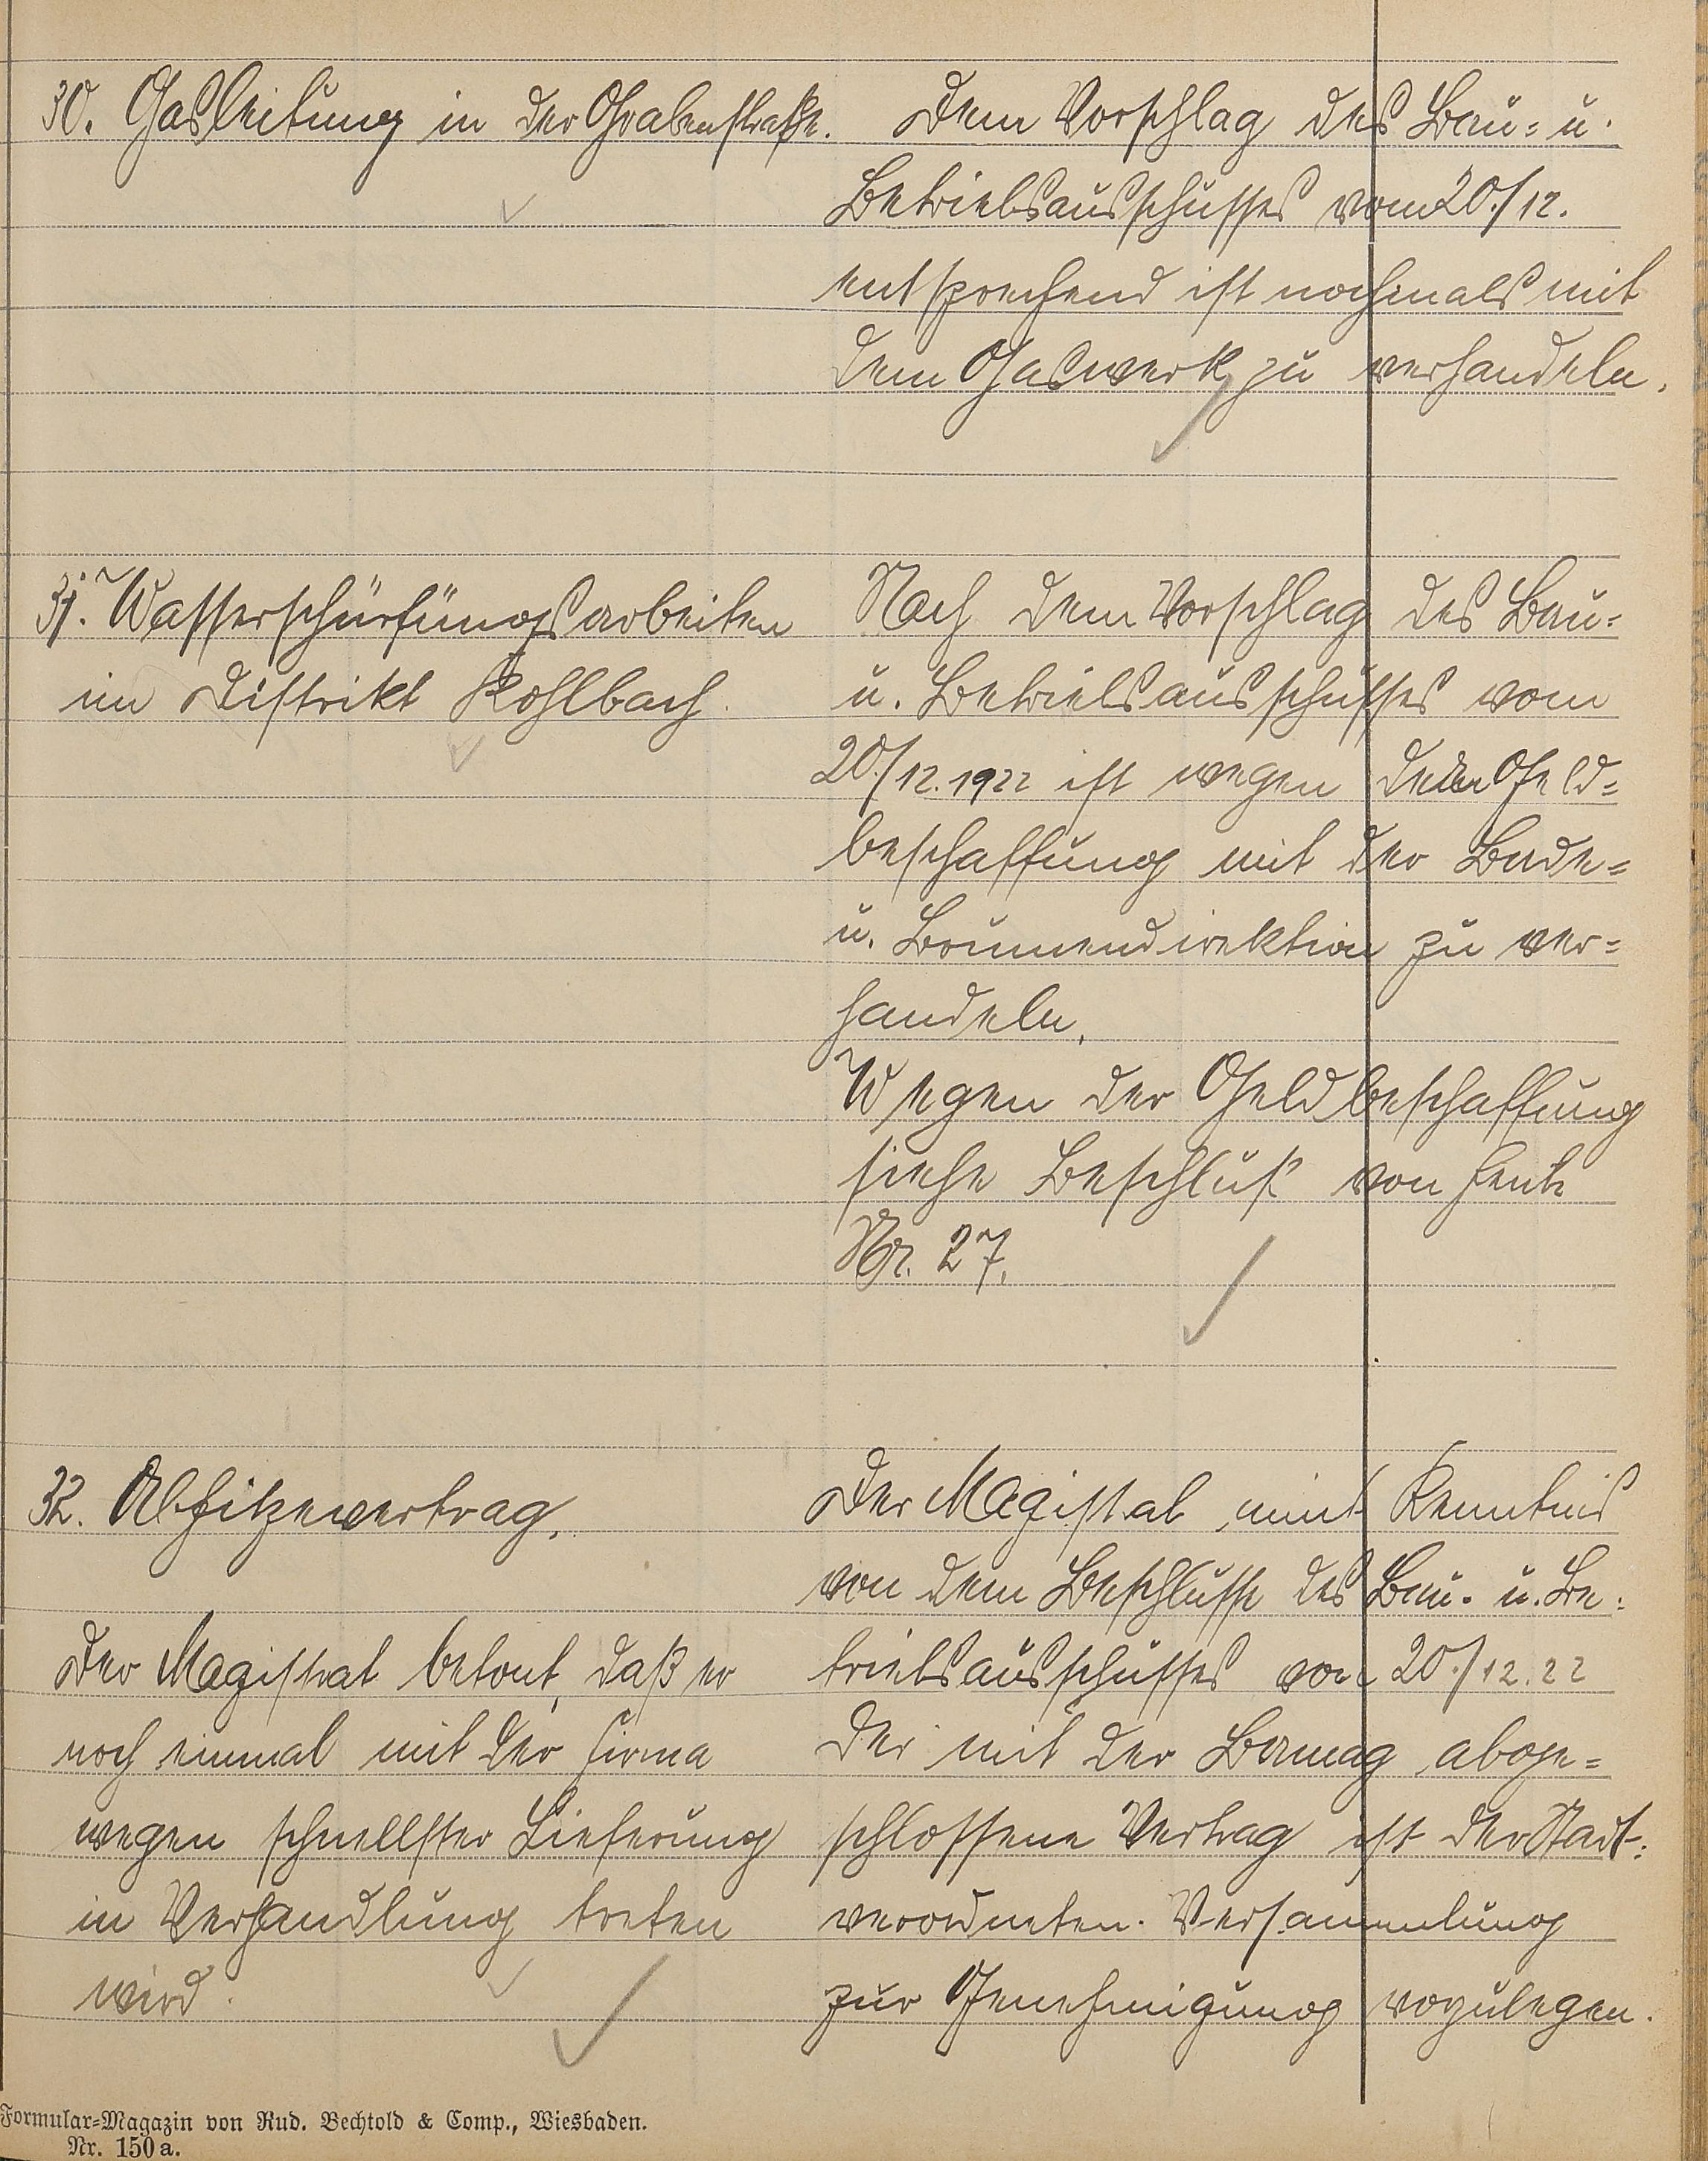 30. Gasleitung in der Grabenstraße.
Dem Vorschlag des Bau- u.
Betriebsausschusses vom 20./12.
entsprechend ist nochmals mit
dem Gaswerk zu verhandeln.
31. Wasserschürfungsarbeiten
im Distrikt Kohlbach.
Nach dem Vorschlag des Bau-
u. Betriebsausschusses vom
20./12.1922 ist wegen der Geld-
beschaffung mit der Bade-
u. Brunnendirektion zu ver-
handeln.
Wegen der Geldbeschaffung
siehe Beschluß von heute
Nr. 27.
32. Abhitzevertrag.
Der Magistrat betont, daß er
noch einmal mit der Firma
wegen schnellster Lieferung
in Verhandlung treten
wird.
Der Magistrat nimt Kenntnis
von dem Beschlusse des Bau- u. Be-
triebsausschusses vom 20./12.22
Der mit der Bamag abge-
schlossene Vertrag ist der Stadt-
verordneten-Versammlung
zur Genehmigung vozulegen.
Formular-Magazin von Rud. Bechtold & Comp., Wiesbaden.
Nr. 150a.